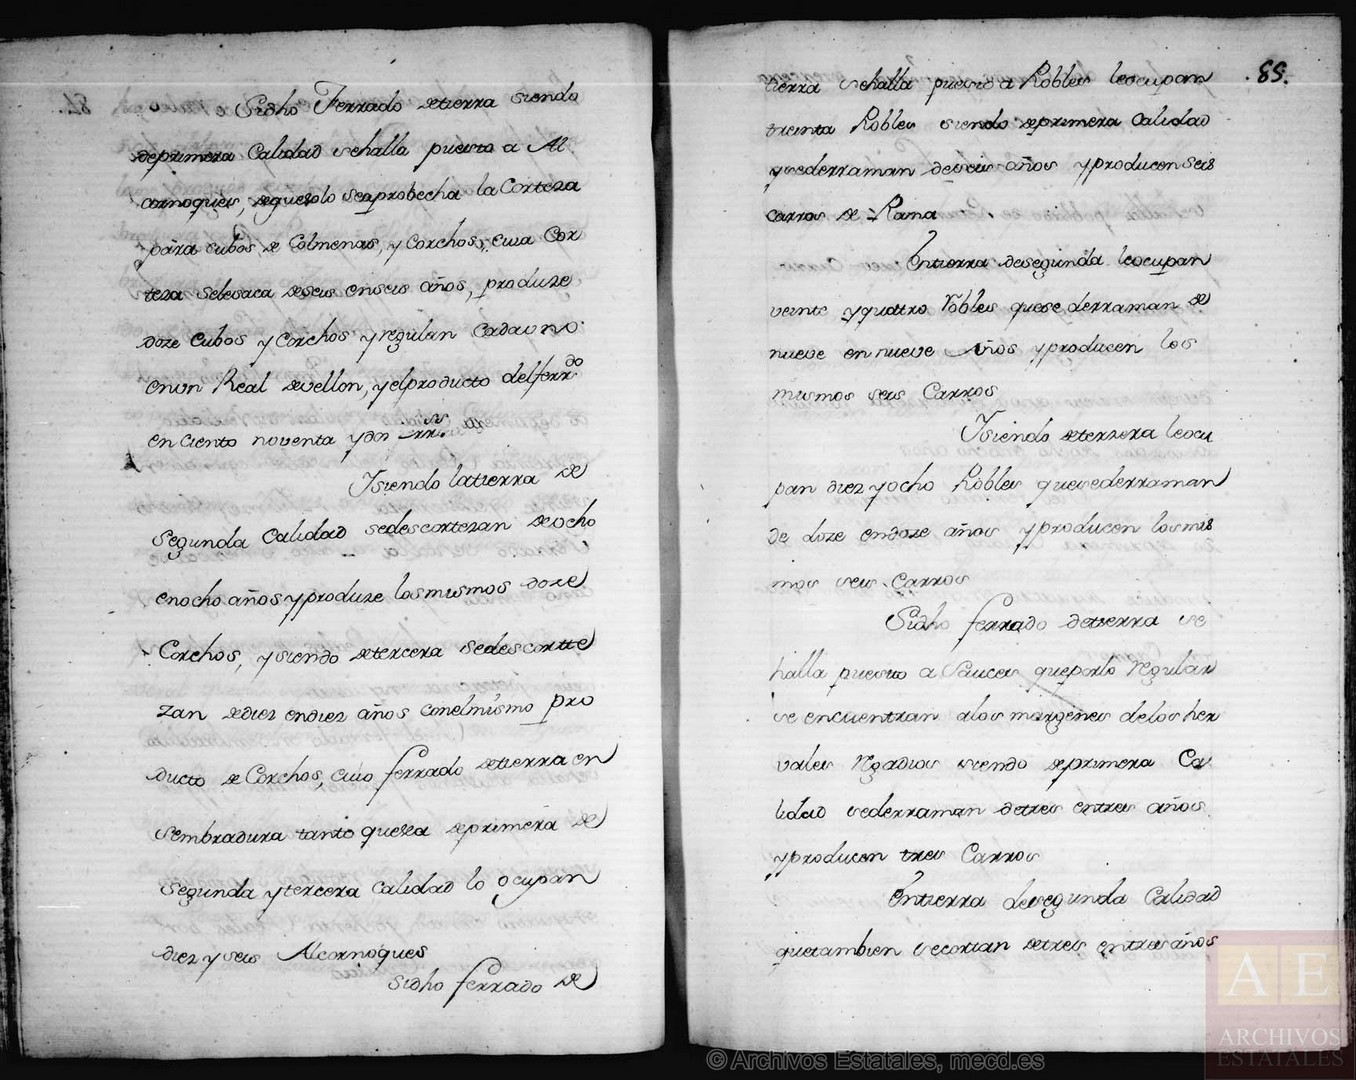 Sidho Ferrado detierra siendo
deprimera Calidad sehalla puesto a Al
cornoques, deque solo seaprobecha la Corteza
para cubos de Colmenas, y Corchos, cuia Cor
teza selesaca deseis enseis años, produze
doze cubos y Corchos y regulan Cadauno
enun Real devellon, yelproducto delferr.do
en ciento noventa ydos rr.s
Ysiendo latierra de
segunda Calidad sedescortezan deocho
enocho años yproduze losmismos doze
Corchos, ysiendo detercera sedescortte
zan dediez endiez años conelmismo pro
ducto de Corchos, cuio ferrado detierra en
sembradura tanto quesea deprimera de
segunda ytercera Calidad lo ocupan
diez y seis Alcornoques
Sidho ferrado de
89.
tierra sehalla puesto a Robles leocupan
treinta Robles siendo deprimera Calidad
ysederraman deseis años yproducen seis
carros de Rama
Entierra desegunda leocupan
veinte yquatro Robles quese derraman de
nueve en nueve Años yproducen los
mismos seis Carros
Ysiendo deterzera leocu
pan diez yocho Robles quesederraman
de doze endoze años yproducen losmis
mos seis Carros
Sidho ferrado detierra se
halla puesto a Sauces queporlo regular
se encuentran alos margenes delos her
vales regadios siendo deprimera Ca
lidad sederraman detres entres años
yproducen tres Carros
Entierra desegunda Calidad
quetambien secortan detres entres años
AE
ARCHIVOS
ESTATALES
© Archivos Estatales, mecd.es